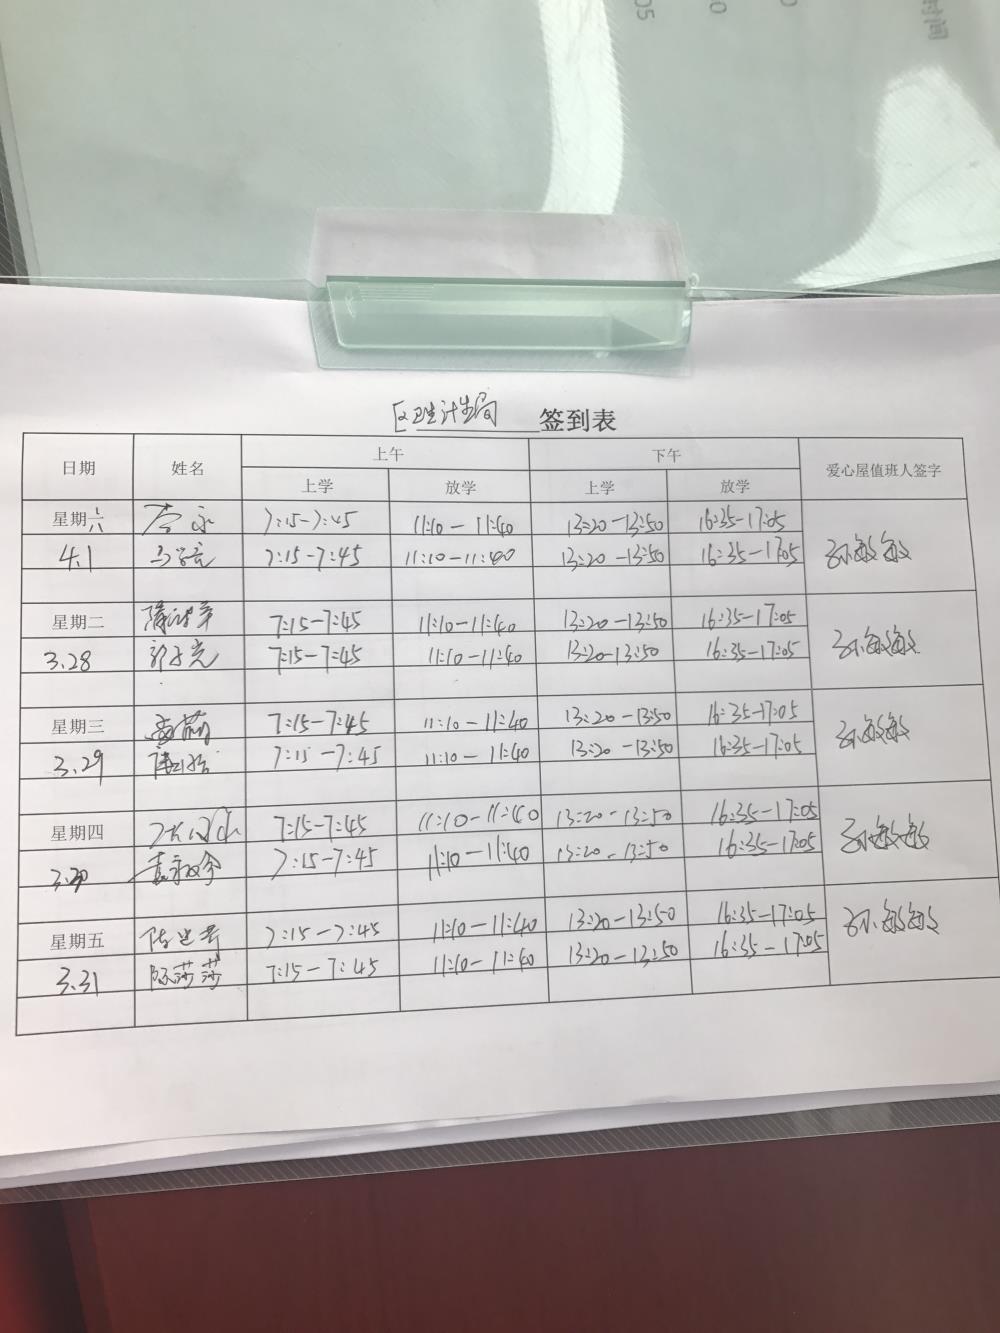 时间
区卫生计生局 签到表
日期 姓名 上午 下午 爱心屋值班人签字
上学 放学 上学 放学
星期六 7:15-7:45 11:10-11:40 13:20-13:50 16:35-17:05
4.1 7:15-7:45 11:10-11:40 13:20-13:50 16:35-17:05 孙敏敏
星期二 7:15-7:45 11:10-11:40 13:20-13:50 16:35-17:05
3.28 7:15-7:45 11:10-11:40 13:20-13:50 16:35-17:05 孙敏敏
星期三 7:15-7:45 11:10-11:40 13:20-13:50 16:35-17:05
3.29 7:15-7:45 11:10-11:40 13:20-13:50 16:35-17:05 孙敏敏
星期四 7:15-7:45 11:10-11:40 13:20-13:50 16:35-17:05
3.30 7:15-7:45 11:10-11:40 13:20-13:50 16:35-17:05 孙敏敏
星期五 7:15-7:45 11:10-11:40 13:20-13:50 16:35-17:05 孙敏敏
3.31 陈莎莎 7:15-7:45 11:10-11:40 13:20-13:50 16:35-17:05